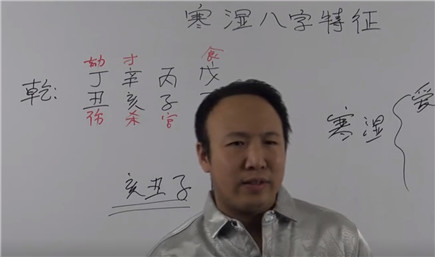 寒湿八字特征
劫 才 食
乾: 丁 辛 丙 戊
丑 亥 子
伤 杀 官
寒湿 { 爱
亥丑子